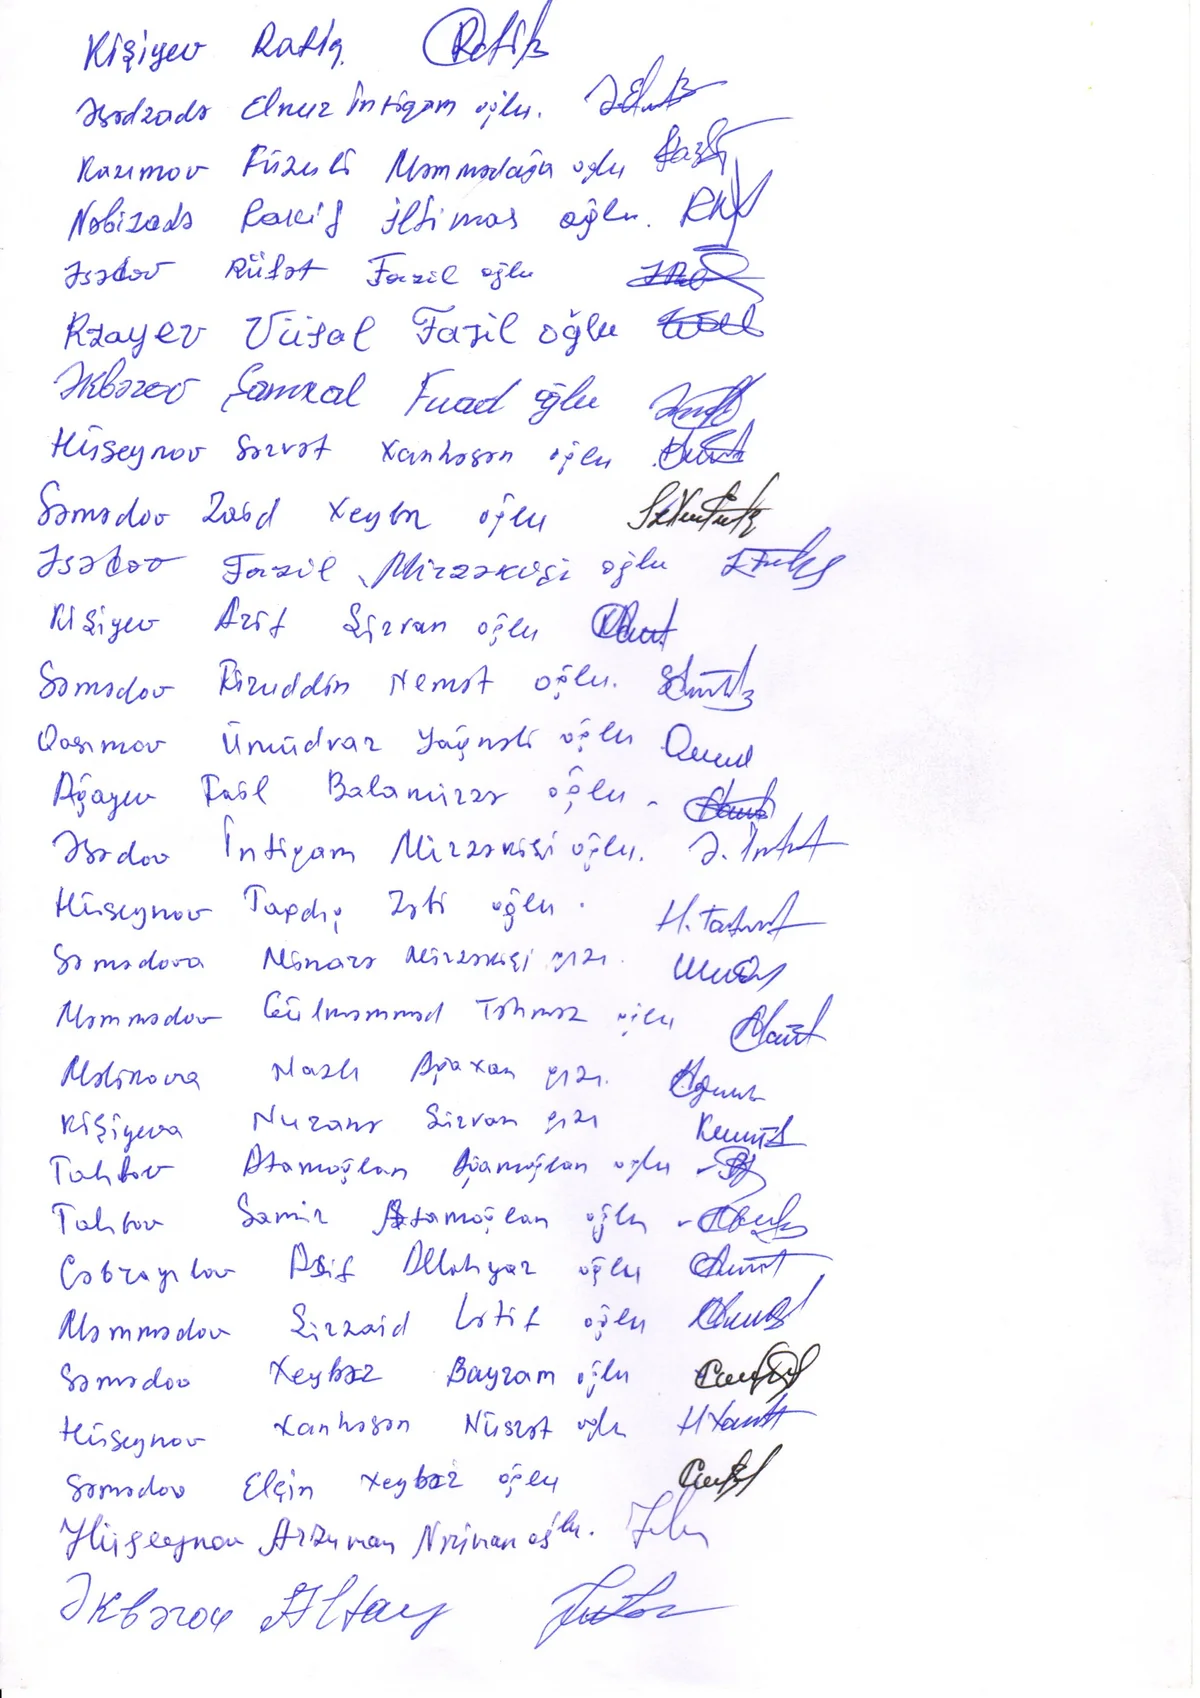 Kişiyev Rafiq. Rafik
Əsədzadə Elnur İntiqam oğlu.
Kazımov Füzuli Məmmədağa oğlu
Nəbizadə Rakif İltimas oğlu.
Əsədov Rüfət Fazil oğlu
Rzayev Vüsal Fazil oğlu
Əkbərov Şamxal Fuad oğlu
Hüseynov Sərvət Xanhəsən oğlu
Səmədov Zaid Xeybər oğlu
Əsədov Fazil Mirzəkişi oğlu
Kişiyev Arif Şirvan oğlu
Səmədov Fizuddin Nemət oğlu.
Qasımov Ümüdvar Yağneli oğlu
Ağayev Fazil Balamirzə oğlu
Əsədov İntiqam Mirzəkişi oğlu. Ə. İnt
Hüseynov Tapdıq Zəbi oğlu. H. Ta
Səmədova Mənarə Mirzəkişi qızı.
Məmmədov Gülməmməd Təhməz oğlu
Məlikova Nazlı Ağaxan qızı.
Kişiyeva Nuranə Şirvan qızı
Talıbov Atamoğlan Ağamoğlan oğlu
Talıbov Samir Atamoğlan oğlu
Cəbrayılov Asif Allahyar oğlu
Məmmədov Şirzaid Lətif oğlu
Səmədov Xeybər Bayram oğlu
Hüseynov Xanhəsən Nüsrət oğlu
Səmədov Elçin Xeybər oğlu
Hüseynov Arzuman Nəriman oğlu.
Əkbərov Altay